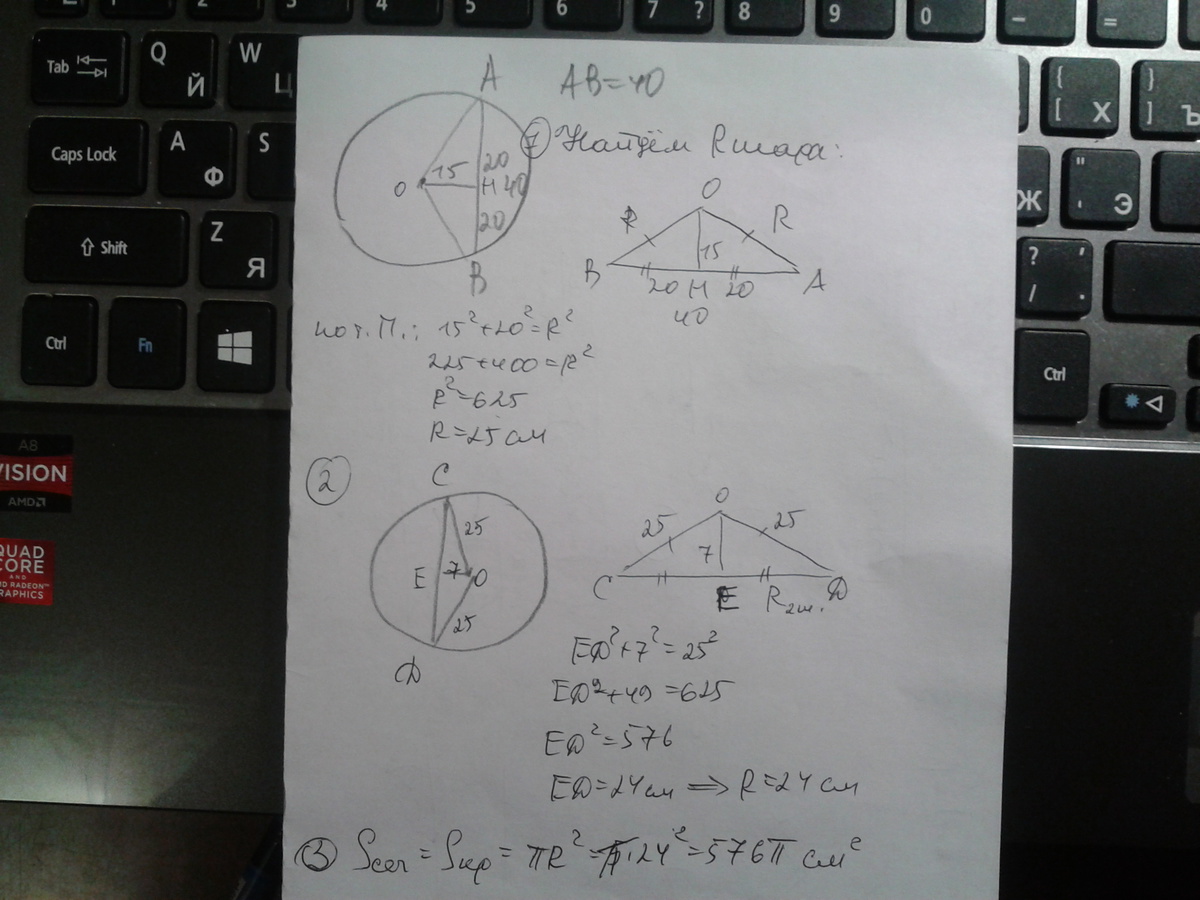 3 4 5 6 7 ? 8 9 0 - =
Tab Q Й W Ц { [ Х } ] Ъ
Caps Lock A Ф S Ж " ' Э
Shift Z Я ? / , .
Ctrl Fn Ctrl
A8
VISION
AMD
QUAD
CORE
AND
RADEON™
GRAPHICS
A AB=40
① Найдём Rшара:
O 15 20 H 40 20 B
O R R 15 B 20 H 20 A
40
по т. П.: 15²+20²=R²
225+400=R²
R²=625
R=25 см
②
C 25 E 7 O 25 D
O 25 25 7 C E R2ш. D
ED²+7²=25²
ED²+49=625
ED²=576
ED=24 см ⟹ R=24 см
③ Sсеч=Sкр=πR²=π·24²=576π см²